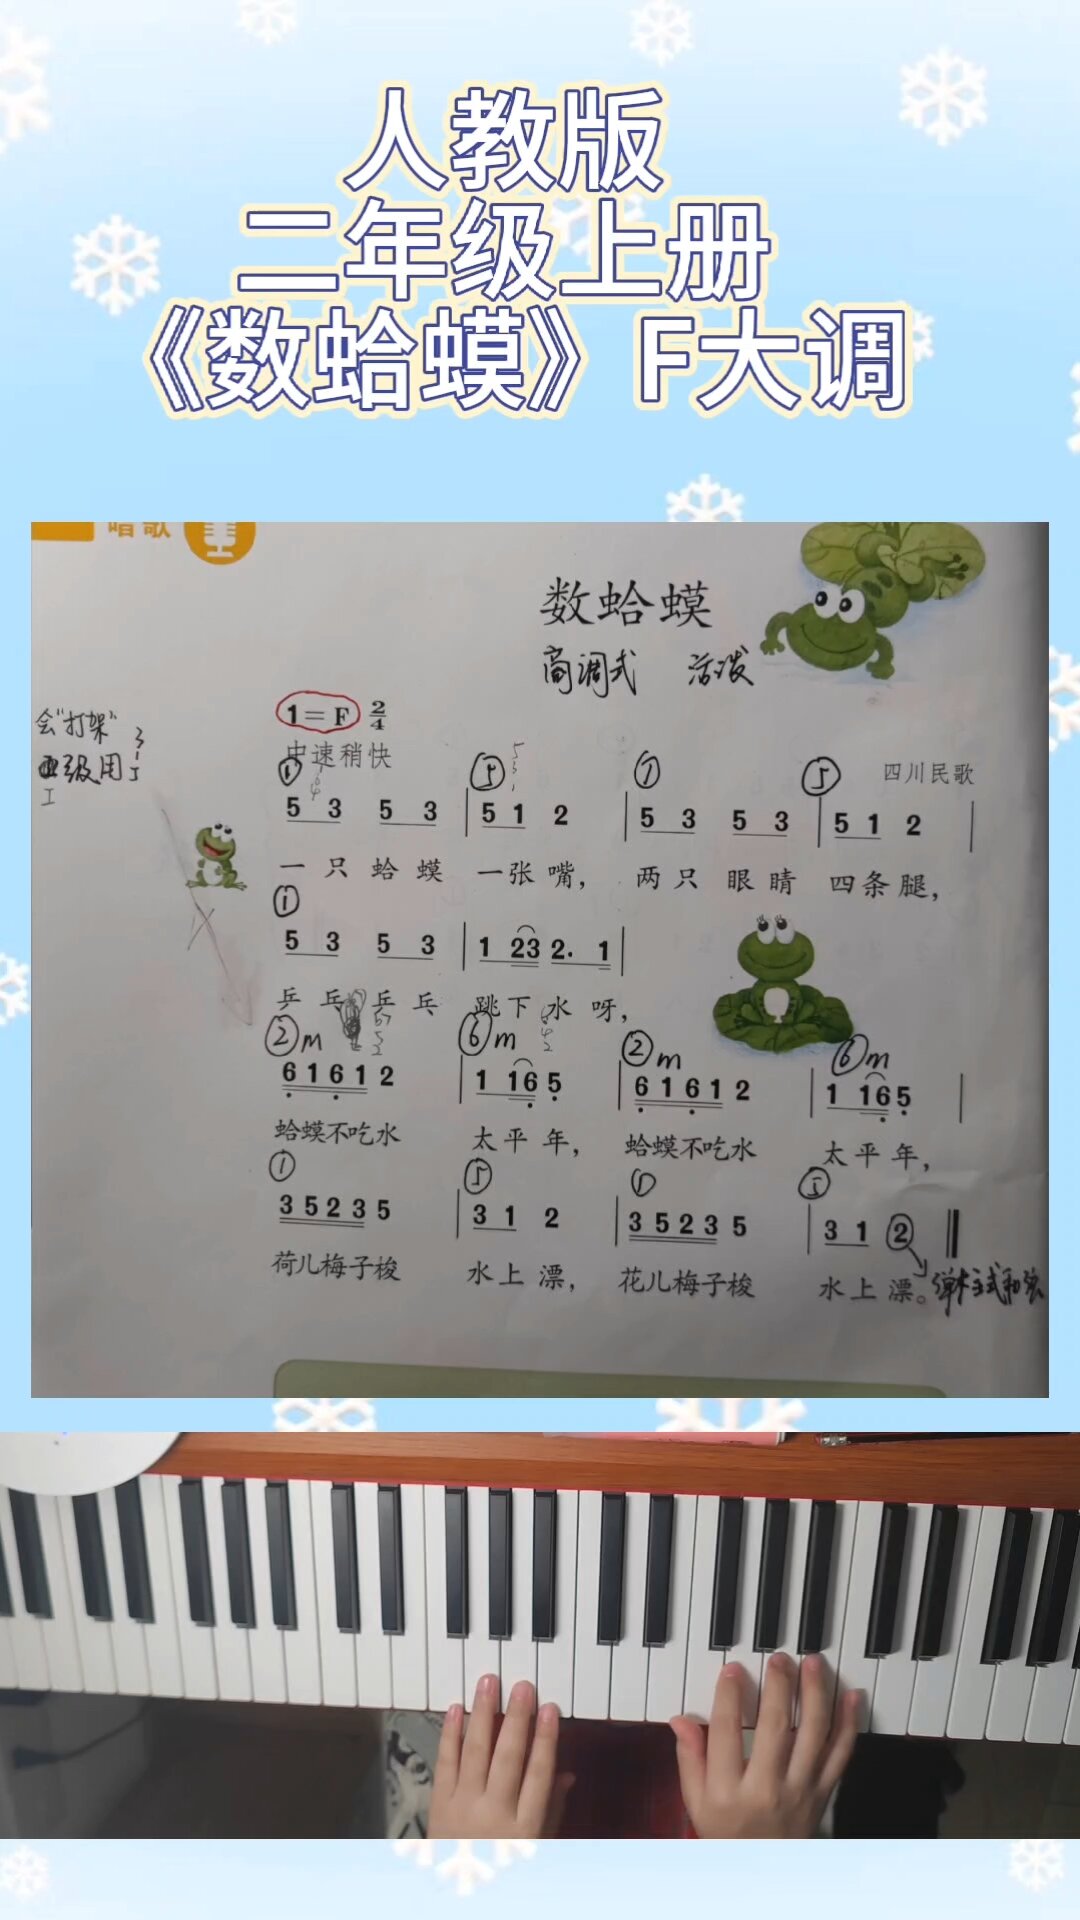 人教版
二年级上册
《数蛤蟆》F大调
唱歌
数蛤蟆
商调式 活泼
1=F 2/4
会"打架"
中速稍快
级用
四川民歌
① ⑤ ① ⑤
5 3 5 3 | 5 1 2 | 5 3 5 3 | 5 1 2 |
一只蛤蟆 一张嘴, 两只眼睛 四条腿,
①
5 3 5 3 | 1 23 2. 1 |
乒乓乒乓 跳下水呀,
②m ⑥m ②m ⑥m
6161 2 | 1 16 5 | 6161 2 | 1 16 5 |
蛤蟆不吃水 太平年, 蛤蟆不吃水 太平年,
① ⑤ ① ⑤
3523 5 | 3 1 2 | 3523 5 | 3 1 2
荷儿梅子梭 水上漂, 花儿梅子梭 水上漂。